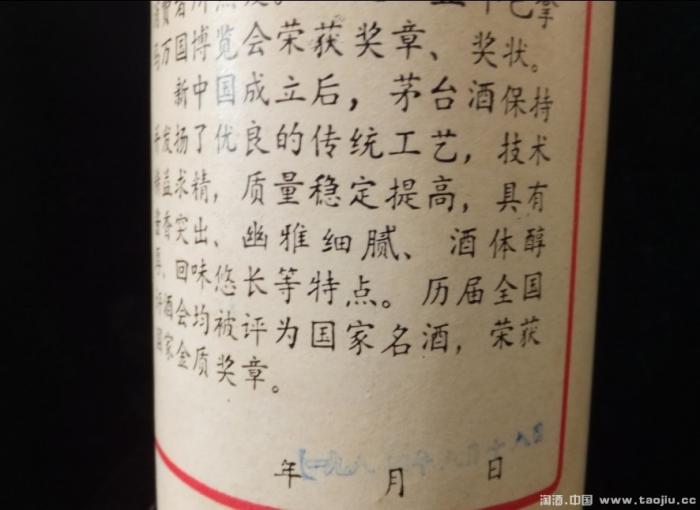 马万国博览会荣获奖章、奖状。
新中国成立后，茅台酒保持
并发扬了优良的传统工艺，技术
益求精，质量稳定提高，具有
香突出、幽雅细腻、酒体醇
厚、回味悠长等特点。历届全国
评酒会均被评为国家名酒，荣获
国家金质奖章。
一九八 年八月十八日
年 月 日
淘酒.中国 www.taojiu.cc